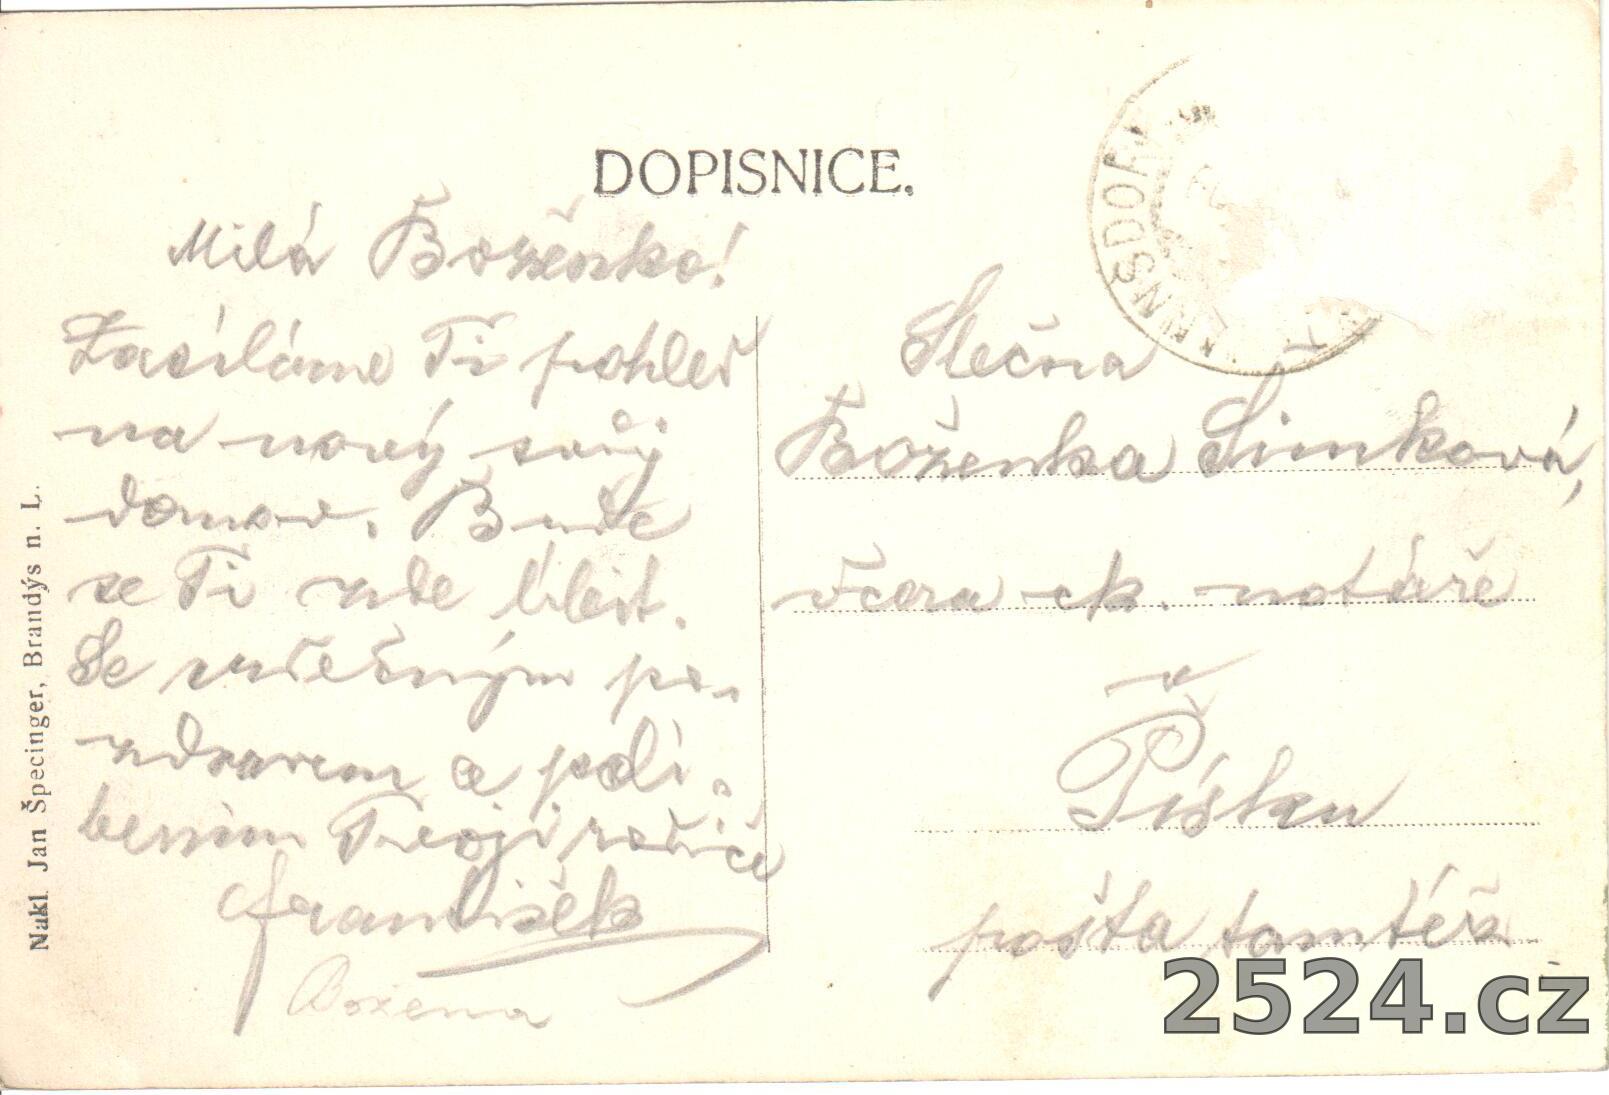 DOPISNICE.
Milá Boženko!
Zasíláme Ti pohled
na nový svůj
domov. Bude
se Ti zde líbit.
Se srdečným po-
zdravem a polí-
bením Tvoji rodiče
František
Božena
Slečna
Boženka Simková,
dcera ck. notáře
v
Písku
pošta tamtéž
Nakl. Jan Špecinger, Brandýs n. L.
2524.cz